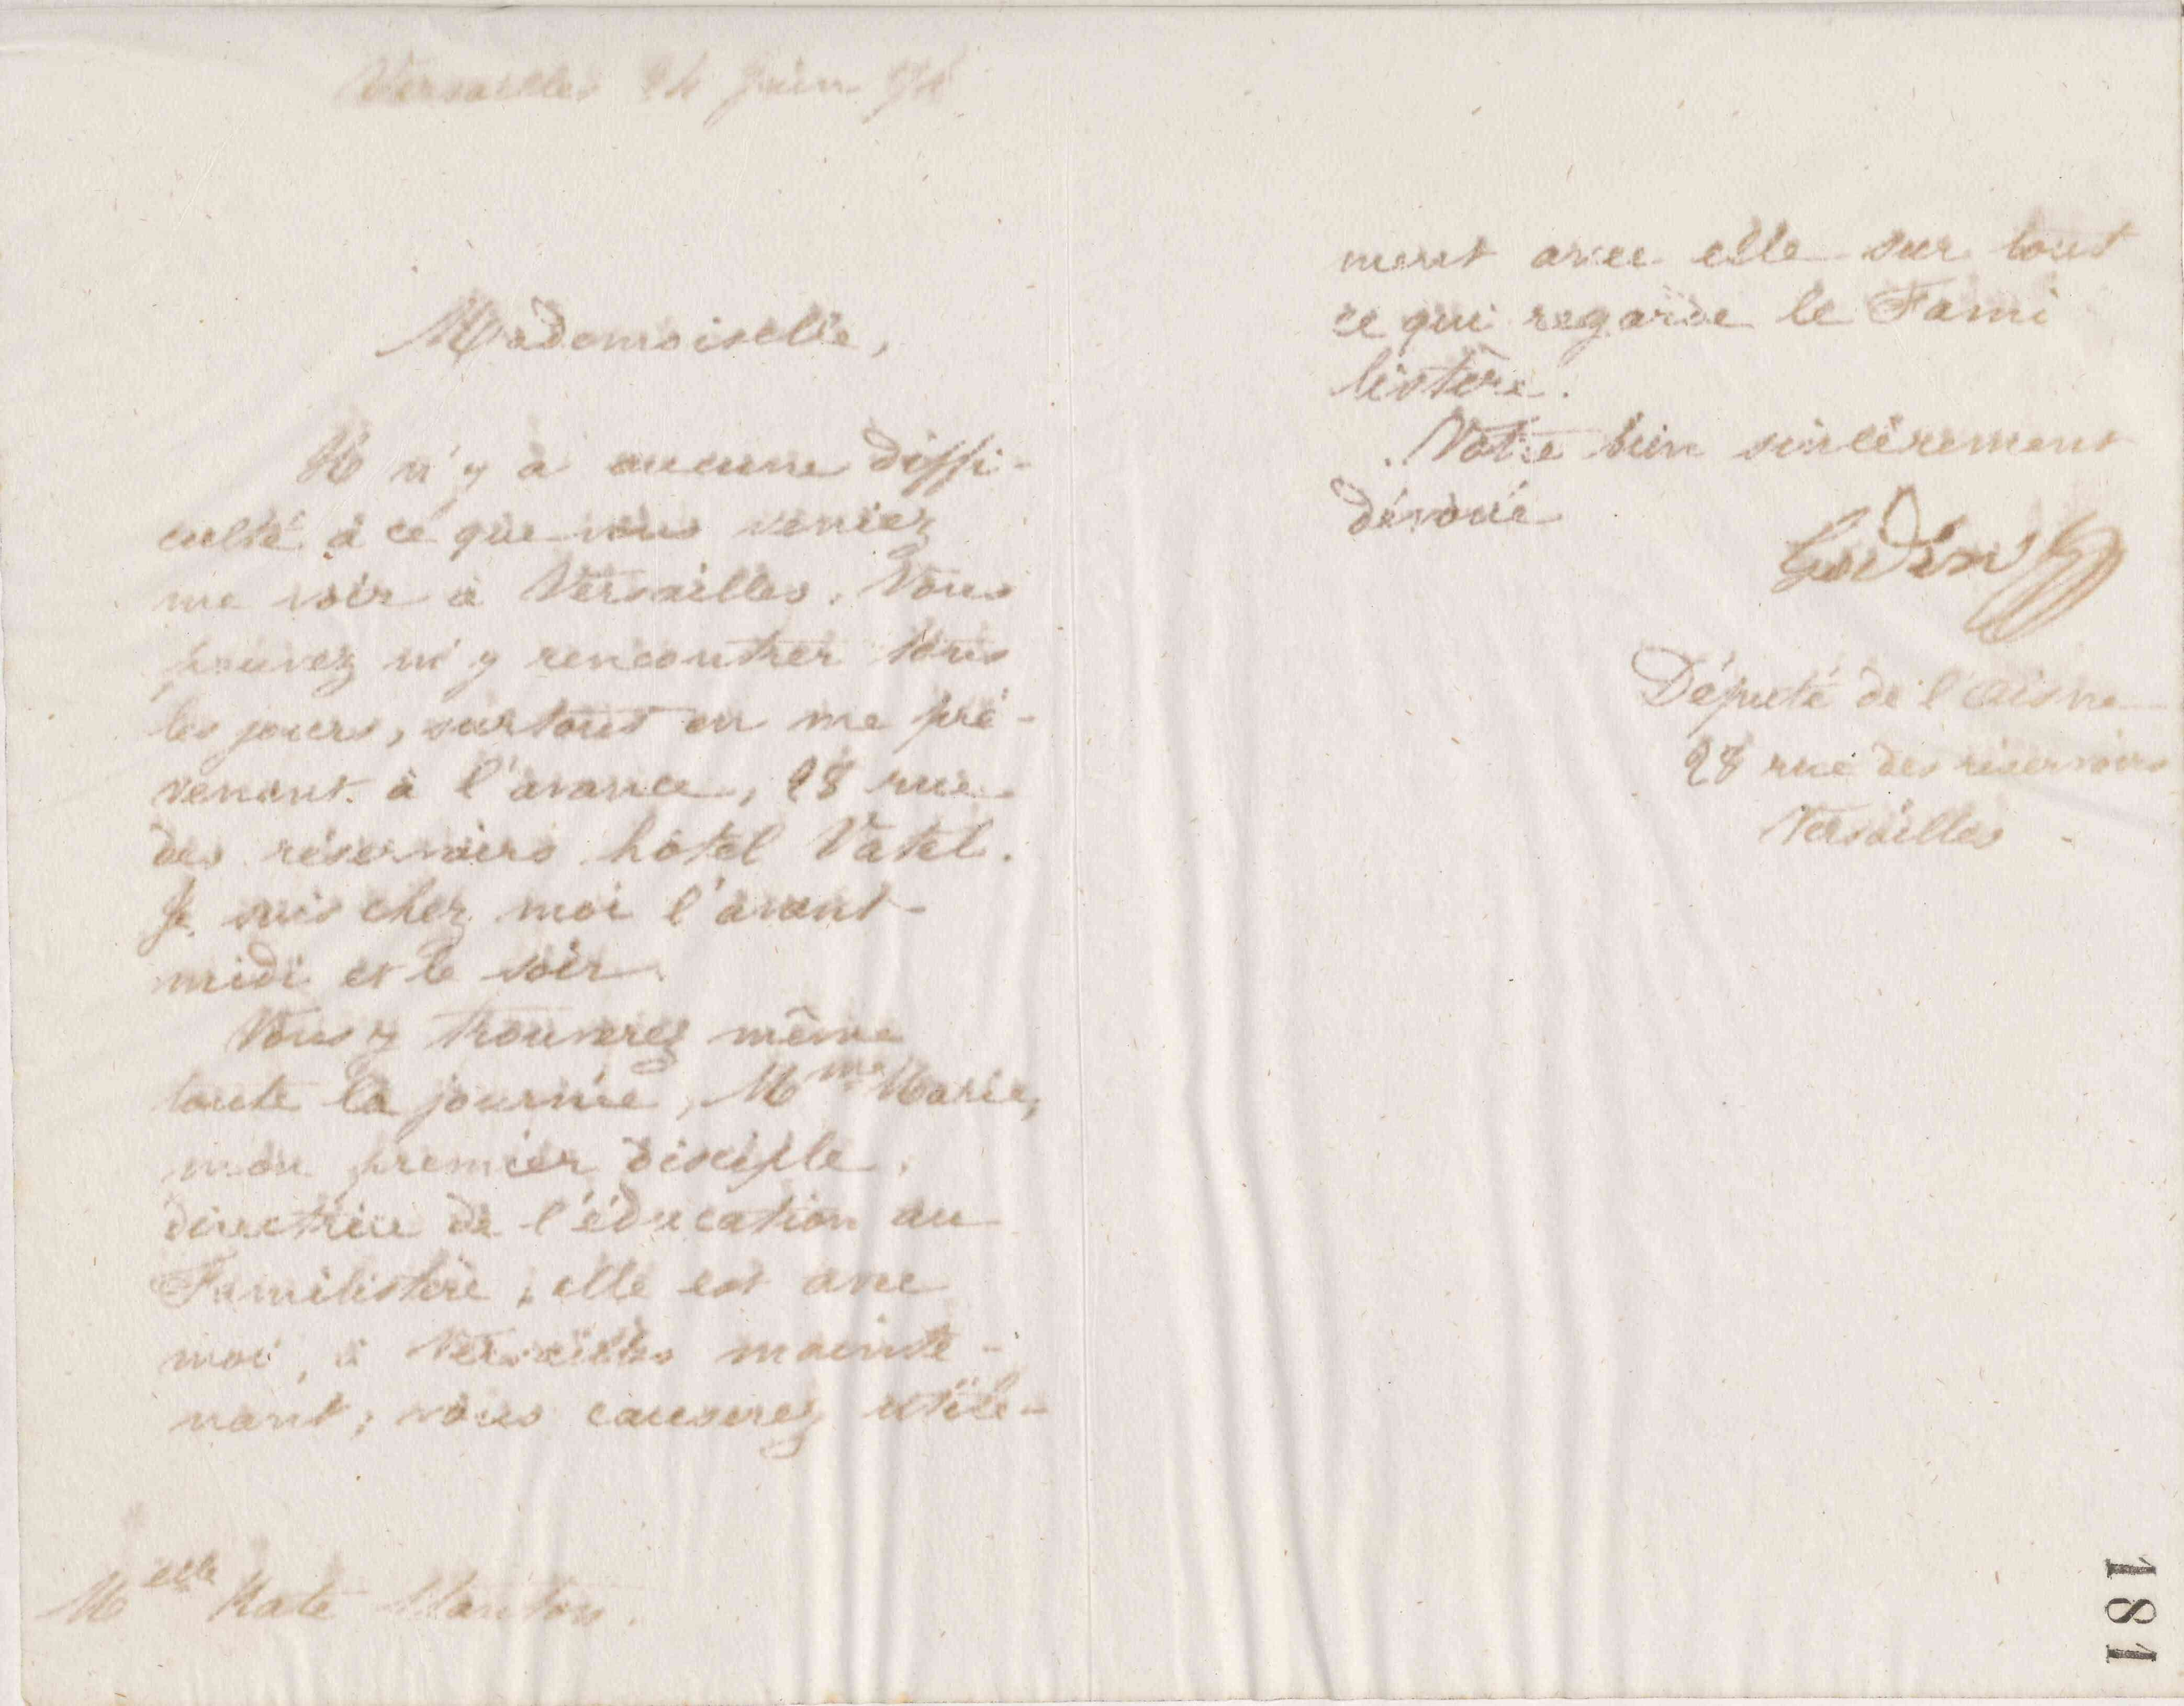 Versailles 24 Juin 74
Mademoiselle,
Il n'y a aucune diffi-
culté à ce que vous veniez
me voir à Versailles. Vous
pouvez m'y rencontrer tous
les jours, surtout en me pré-
venant à l'avance, 28 rue
des réservoirs hôtel Vatel.
Je suis chez moi l'avant-
midi et le soir.
Vous y trouverez même
toute la journée, Mme Marie,
mon premier disciple,
directrice de l'éducation au
Familistère, elle est avec
moi, à Versailles mainte-
nant; vous causerez utile-
Melle Kate Stanton.
ment avec elle sur tout
ce qui regarde le Fami
listère.
Votre bien sincèrement
dévoué
Godin
Député de l'aisne
28 rue des réservoirs
Versailles
181